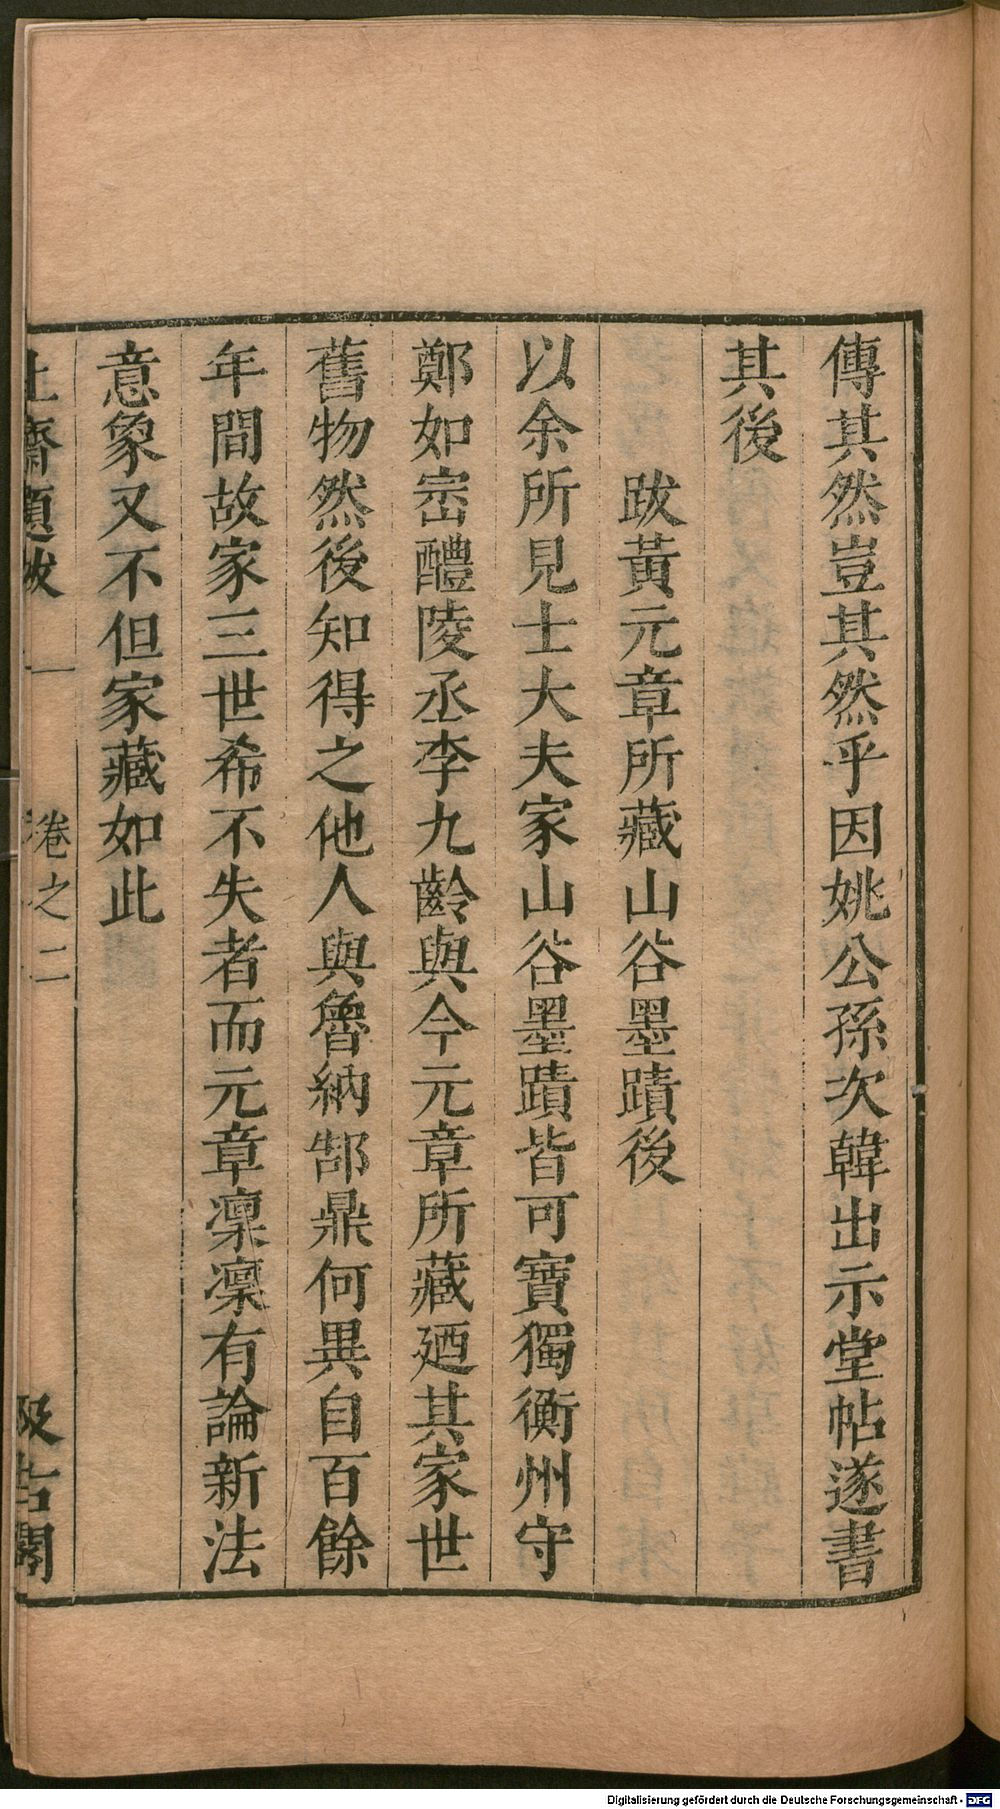 傳其然豈其然乎因姚公孫次韓出示堂帖遂書
其後
跋黃元章所藏山谷墨蹟後
以余所見士大夫家山谷墨蹟皆可寶獨衡州守
鄭如崈醴陵丞李九齡與今元章所藏廼其家世
舊物然後知得之他人與魯納郜鼎何異自百餘
年間故家三世希不失者而元章凜凜有論新法
意象又不但家藏如此
止齋題跋 一 卷之二 汲古閣
Digitalisierung gefördert durch die Deutsche Forschungsgemeinschaft - DFG